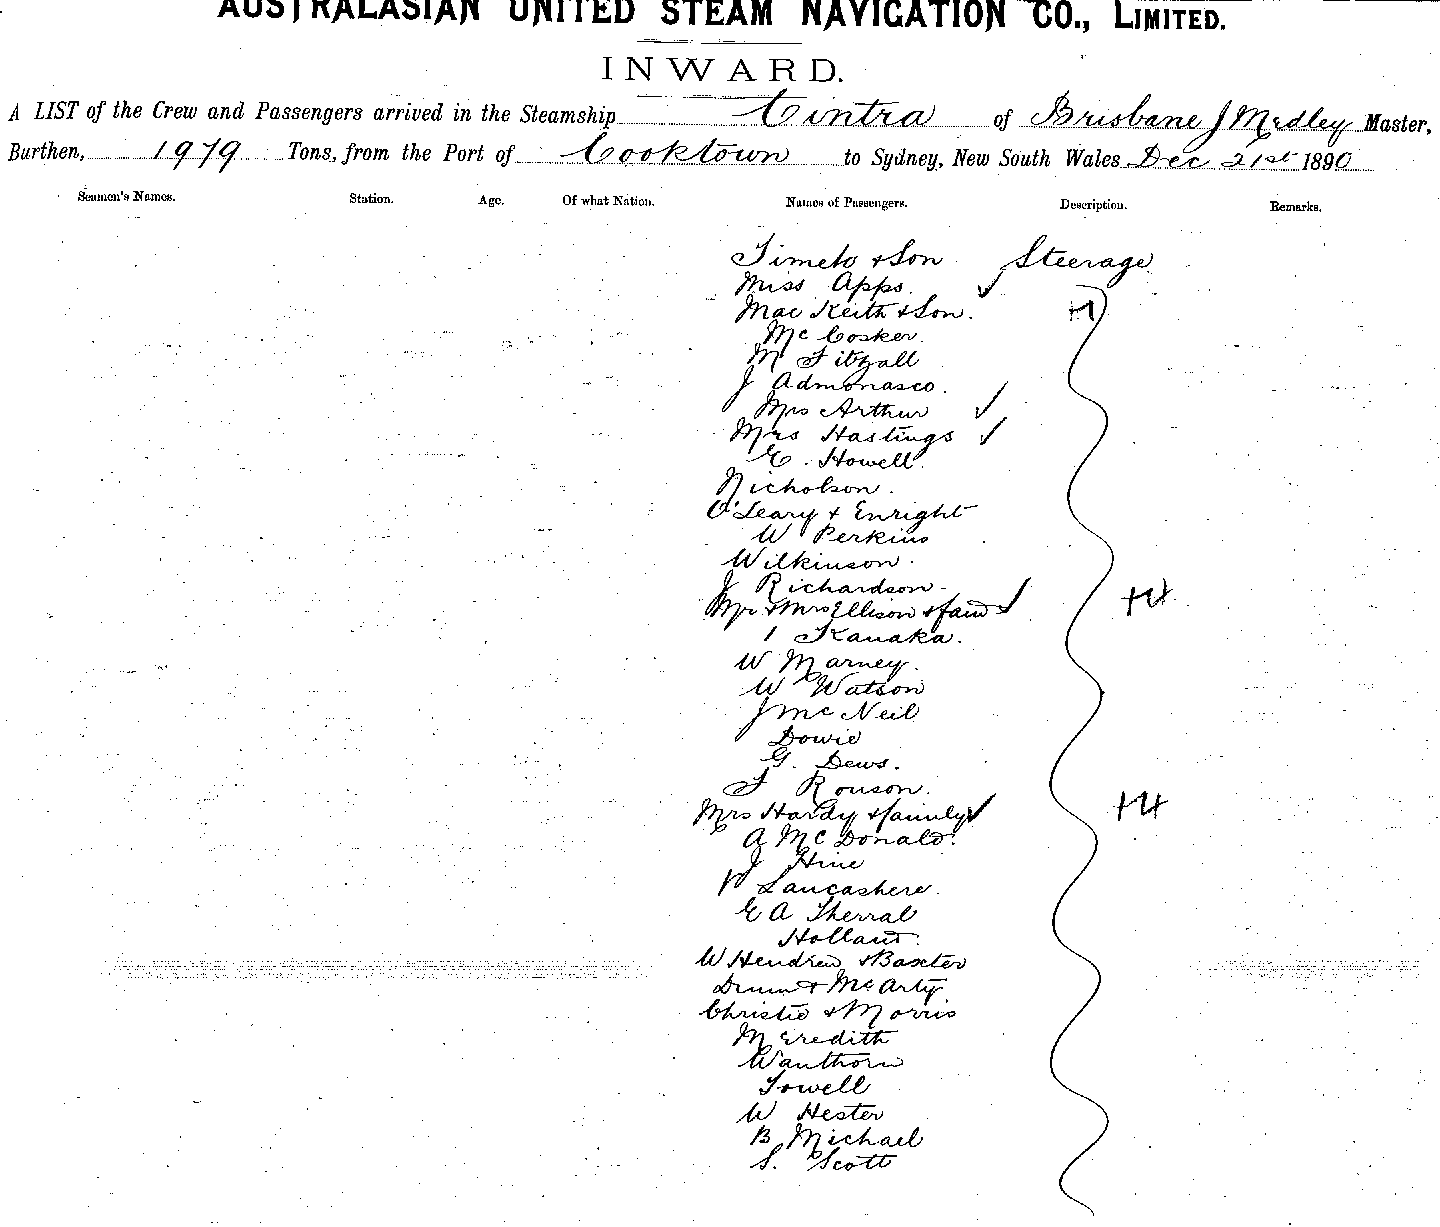 AUSTRALASIAN UNITED STEAM NAVIGATION CO., LIMITED.
INWARD.
A LIST of the Crew and Passengers arrived in the Steamship Cintra of Brisbane J Medley Master,
Burthen, 1979 Tons, from the Port of Cooktown to Sydney, New South Wales Dec 21st 1890
Seamen's Names. Station. Age. Of what Nation. Names of Passengers. Description. Remarks.
& Son Steerage
Miss Apps
Mac Keith & Son.
McCosker.
M Fitzgall
J Admonasco.
Mrs Arthur
Mrs Hastings
E. Howell
Nicholson.
O'Leary & Enright
W Perkins
Wilkinson.
J Richardson
Mr & Mrs Ellison & fam
1 Kanaka.
W Marney.
W Watson
J McNeil
Dowie
G. Dews.
Ronson.
Mrs Hardy & family
A McDonald.
J Hine
Lancashere.
E A Sherral
Holland.
W Hendren & Baxter
Dunn & McArty
Christie & Morris
Meredith
Wanthorn
Sowell
W Hester
B Michael
S. Scott